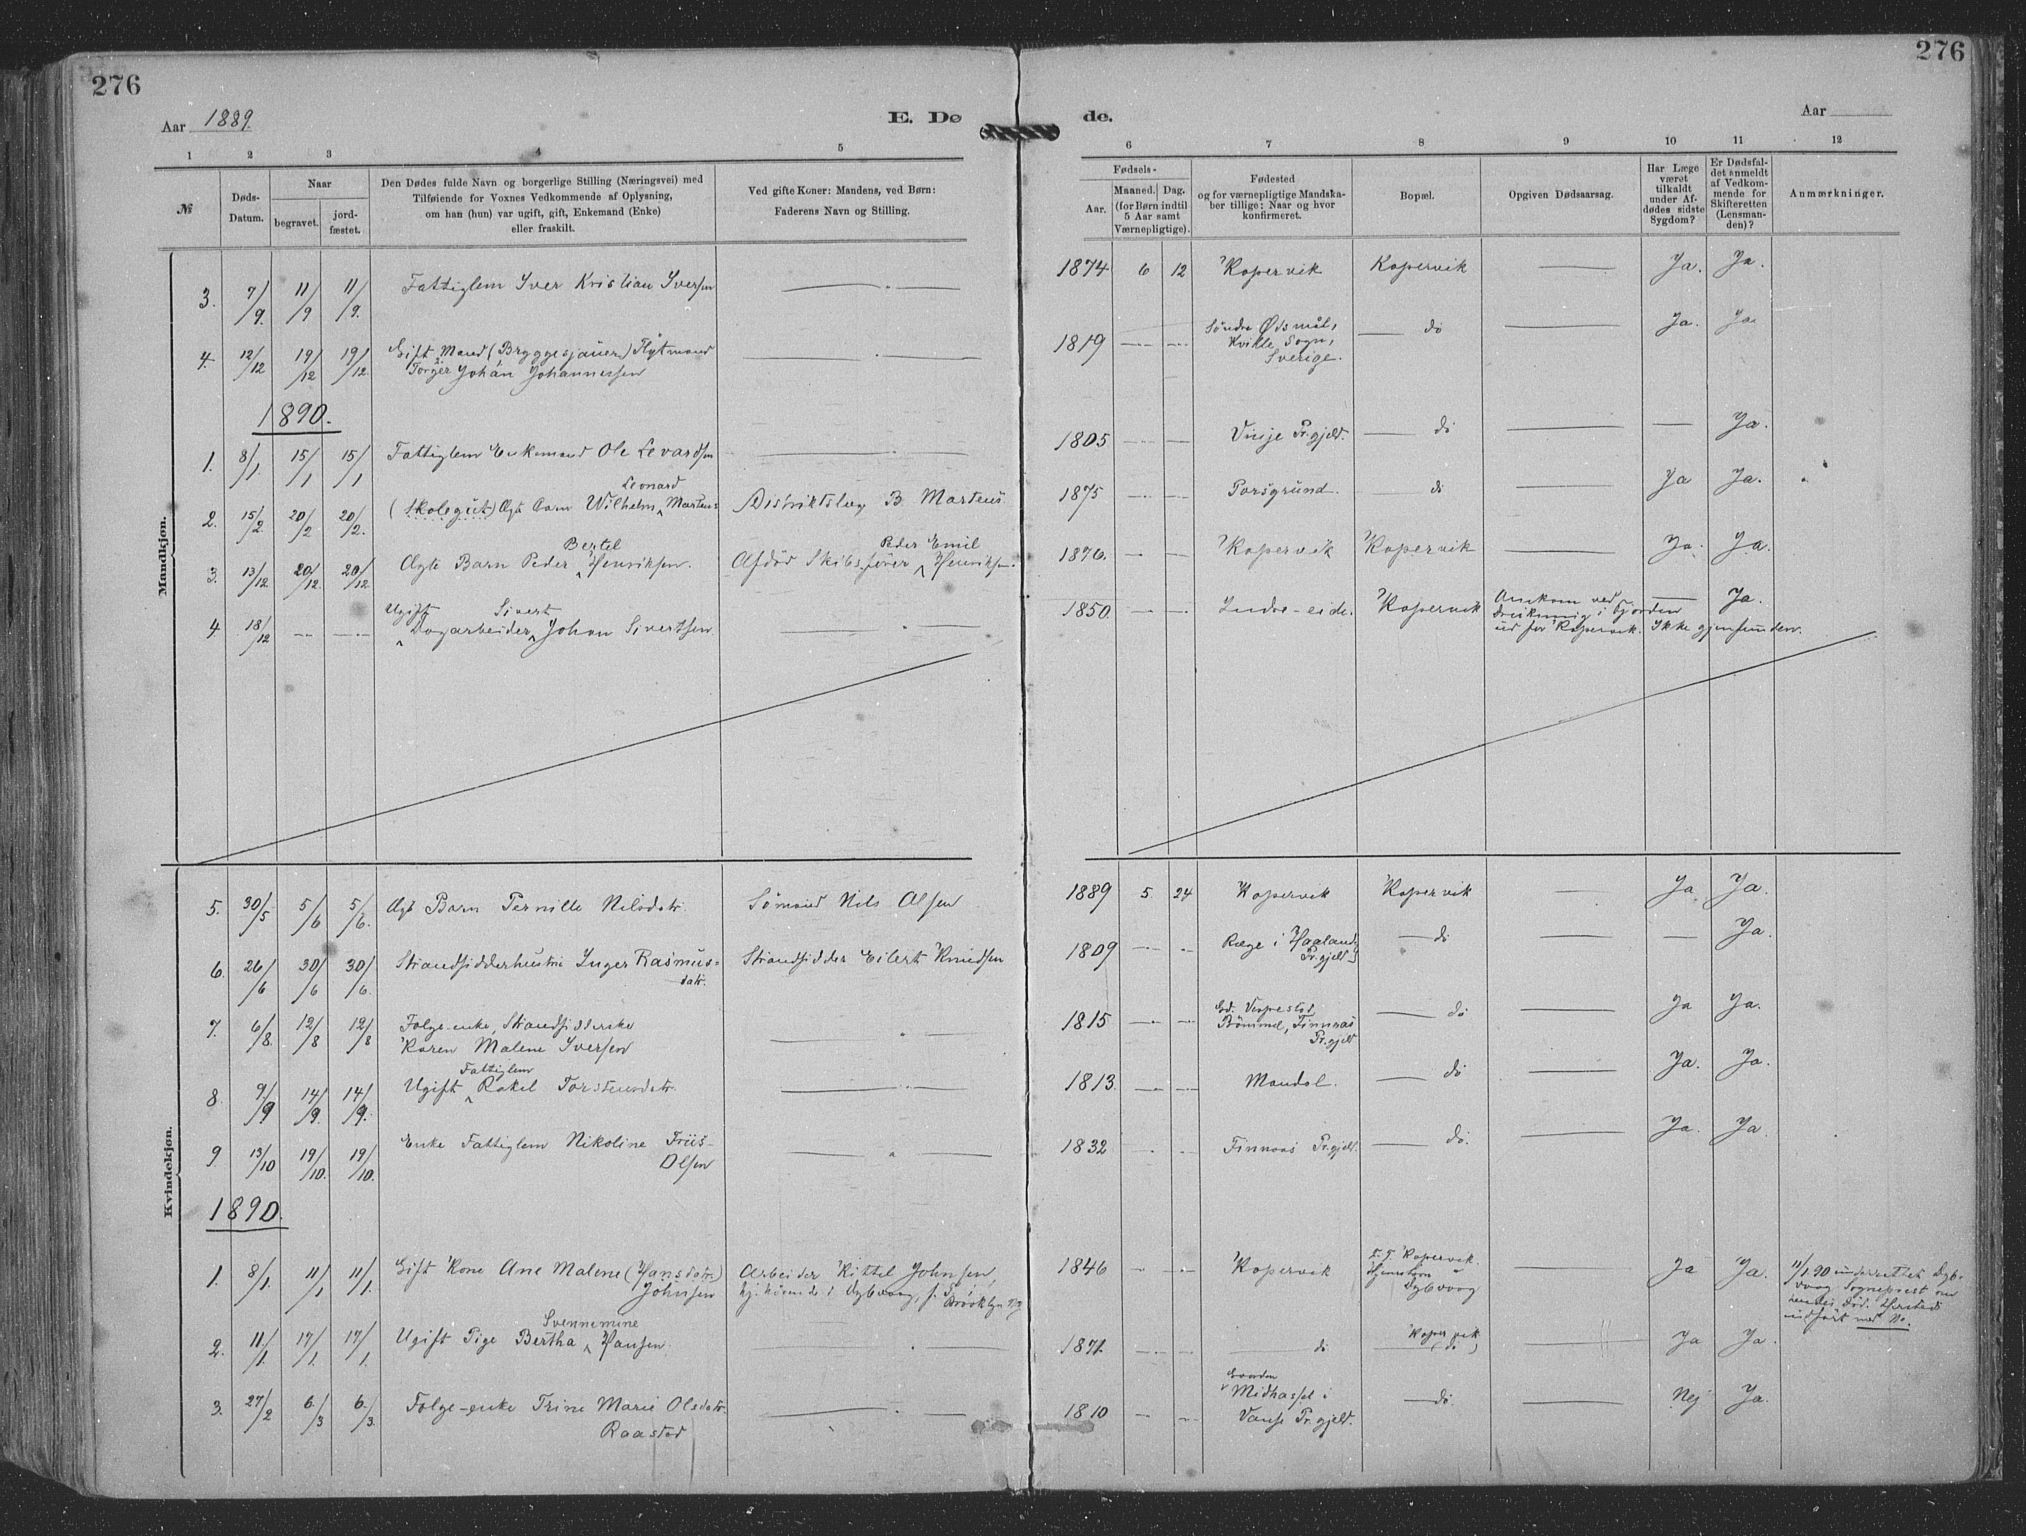 276
276
Aar 1889.
E. Dø
de.
Aar
1 2 3 4 5 6 7 8 9 10 11 12
№
Døds-Datum.
Naar
begravet.
jord-fæstet.
Den Dødes fulde Navn og borgerlige Stilling (Næringsvei) med
Tilføiende for Voxnes Vedkommende af Oplysning,
om han (hun) var ugift, gift, Enkemand (Enke)
eller fraskilt.
Ved gifte Koner: Mandens, ved Børn:
Faderens Navn og Stilling.
Fødsels-
Aar.
Maaned. Dag.
(for Børn indtil
5 Aar samt
Værnepligtige).
Fødested
og for værnepligtige Mandska-
ber tillige: Naar og hvor
konfirmeret.
Bopæl.
Opgiven Dødsaarsag.
Har Læge
været
tilkaldt
under Af-
dødes sidste
Sygdom?
Er Dødsfal-
det anmeldt
af Vedkom-
mende for
Skifteretten
(Lensman-
den)?
Anmærkninger.
Mandkjøn.
3. 7/9. 11/9 11/9. Fattiglem Iver Kristian Iversen 1874 6 12 Kopervik Kopervik Ja. Ja.
4. 12/12 19/12 19/12. Gift Mand (Bryggesjauer) Flytmand
Torger Johan Johannessen
1819 Søndre Ødsmål,
Kville Sogn,
Sverige. do Ja. Ja
1890.
1. 8/1. 15/1 15/1 Fattiglem Enkemand Ole Levardsen 1805 Vinje Pr.gjeld. do Ja.
2. 15/2. 20/2 20/2. (Skolegut) Ægt Barn Wilhelm Leonard Martens Distriktslæge B. Martens. 1875 Porsgrund. do Ja Ja.
3. 13/12 20/12 20/12 Ægte Barn Peder Bertel Henriksen. Afdød Skibsfører Peder Emil Henriksen. 1876. Kopervik Kopervik Ja. Ja.
4 18/12 Ugift Dagarbeider Sivert Johan Sivertsen. 1850. Indre-eide. Kopervik Omkom ved
drukning i Fjorden
ud for Kopervik. Ikke gjenfunden. Ja.
Kvindekjøn.
5. 30/5 5/6 5/6. Ægt Barn Pernille Nilsdatr. Sømand Nils Olsen 1889 5. 24 Kopervik Kopervik Ja Ja.
6. 26/6 30/6 30/6. Strandsidderhustru Inger Rasmus-
datr. Strandsidder Eilert Knudsen 1809 Ræge i Haaland
Pr.gjeld do Ja.
7. 6/8 12/8 12/8 Folge-enke, Strandsidderske
Karen Malene Iversen 1815 Gd. Vespestad,
Bömmel, Finnaas
Pr.gjeld do Ja Ja.
8. 9/9 14/9. 14/9. Ugift Fattiglem Rakel Torstensdatr. 1813. Mandal. do Ja. Ja.
9 13/10 19/10. 19/10. Enke Fattiglem Nikoline Friis-
Olsen 1832 Finnaas Pr.gjeld. do. Ja. Ja.
1890.
1. 8/1. 11/1 11/1. Gift Kone Ane Malene (Hansdatr.)
Johnsen Arbeider Kittel Johnsen,
hj.hörende i Dybvaag, f. T.
Brooklyn 1846 Kopervik T. T. Kopervik.
Hjemstavn
Dybvaag Ja Ja. 11/1 90 underrettet Dyb-
vaag Sogneprest om
hendes Død.
indført med No.
2. 11/1. 17/1. 17/1. Ugift Pige Bertha Svennemine Hansen. 1871. do Kopervik
(do) Ja Ja.
3. 27/2 6/3 6/3. Folge-enke Trine Marie Olsdatr.
Raastad 1810 Midhassel i
Vanse Pr.gjeld. do. Nej Ja.